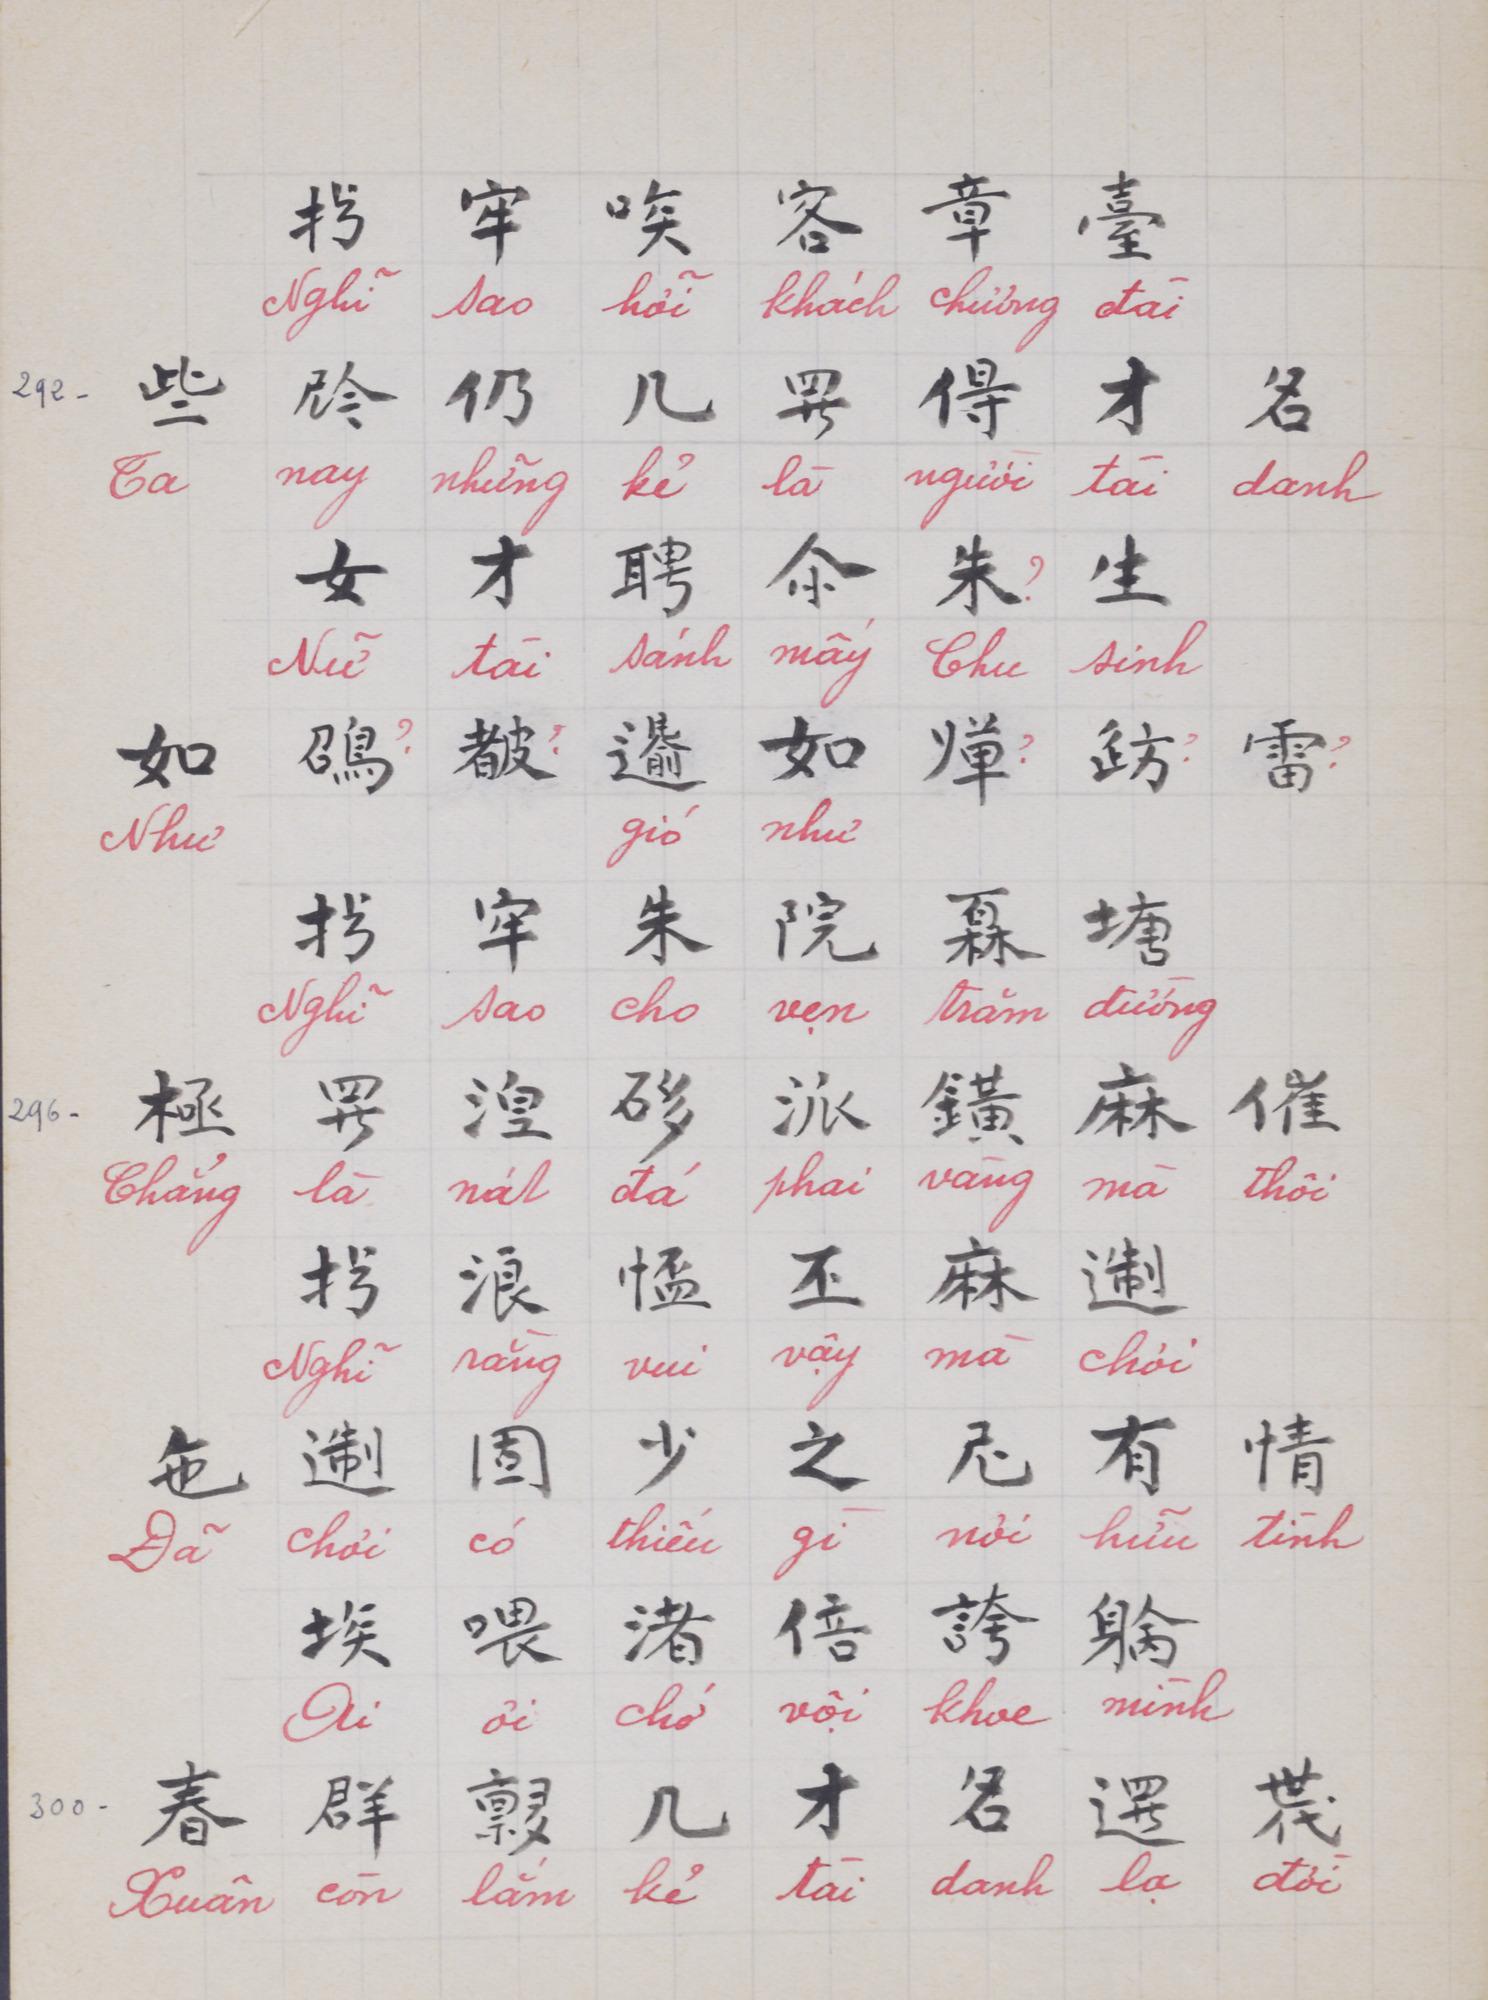 牢唉客章臺
Nghĩ sao hỡi khách chương đài
292-
些 仍几 得才名
Ta nay những kẻ là người tài danh
女才聘 朱? 生
Nữ tài sánh mấy Chu sinh
如 ? ? 如 ? ? 雷?
Như gió như
牢朱院 塘
Nghĩ sao cho vẹn trăm đường
296-
極 湼 派鐄麻催
Chẳng là nát đá phai vàng mà thôi
浪 丕麻
Nghĩ rằng vui vậy mà chơi
固少之 有情
Đã chơi có thiếu gì nơi hữu tình
埃喂渚倍誇
Ai ơi chớ vội khoe mình
300-
春群 几才名
Xuân còn lắm kẻ tài danh lạ đời